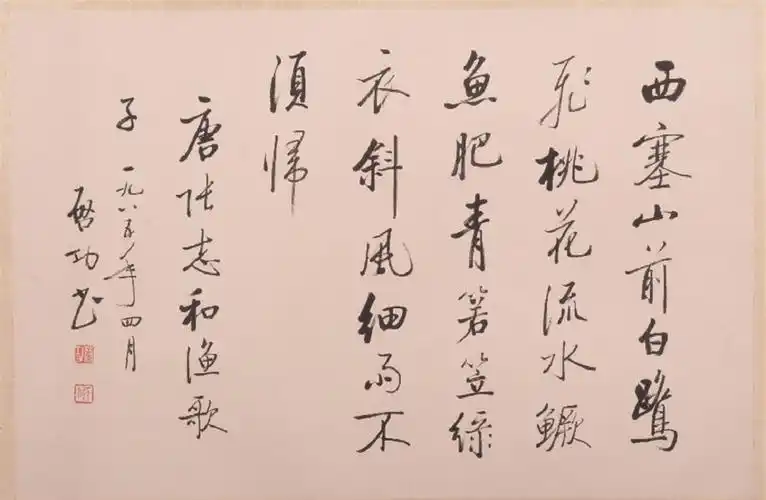 西塞山前白鷺
飛桃花流水鱖
魚肥青箬笠綠
衣斜風細雨不
須歸
唐張志和漁歌
子 一九八五年四月
啟功書